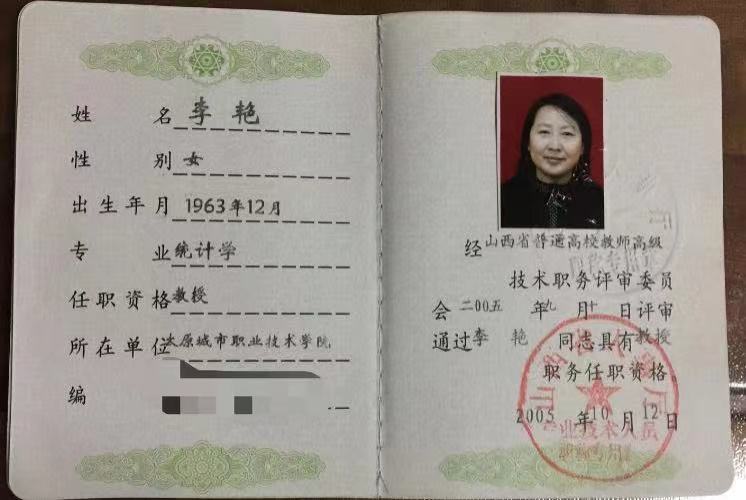 姓名 李艳
性别 女
出生年月 1963年12月
专业 统计学
任职资格 教授
所在单位 太原城市职业技术学院
编
经山西省普通高校教师高级
技术职务评审委员
会二00五年九月十日评审
通过李艳同志具有教授
职务任职资格。
2005年10月12日
专业技术人员